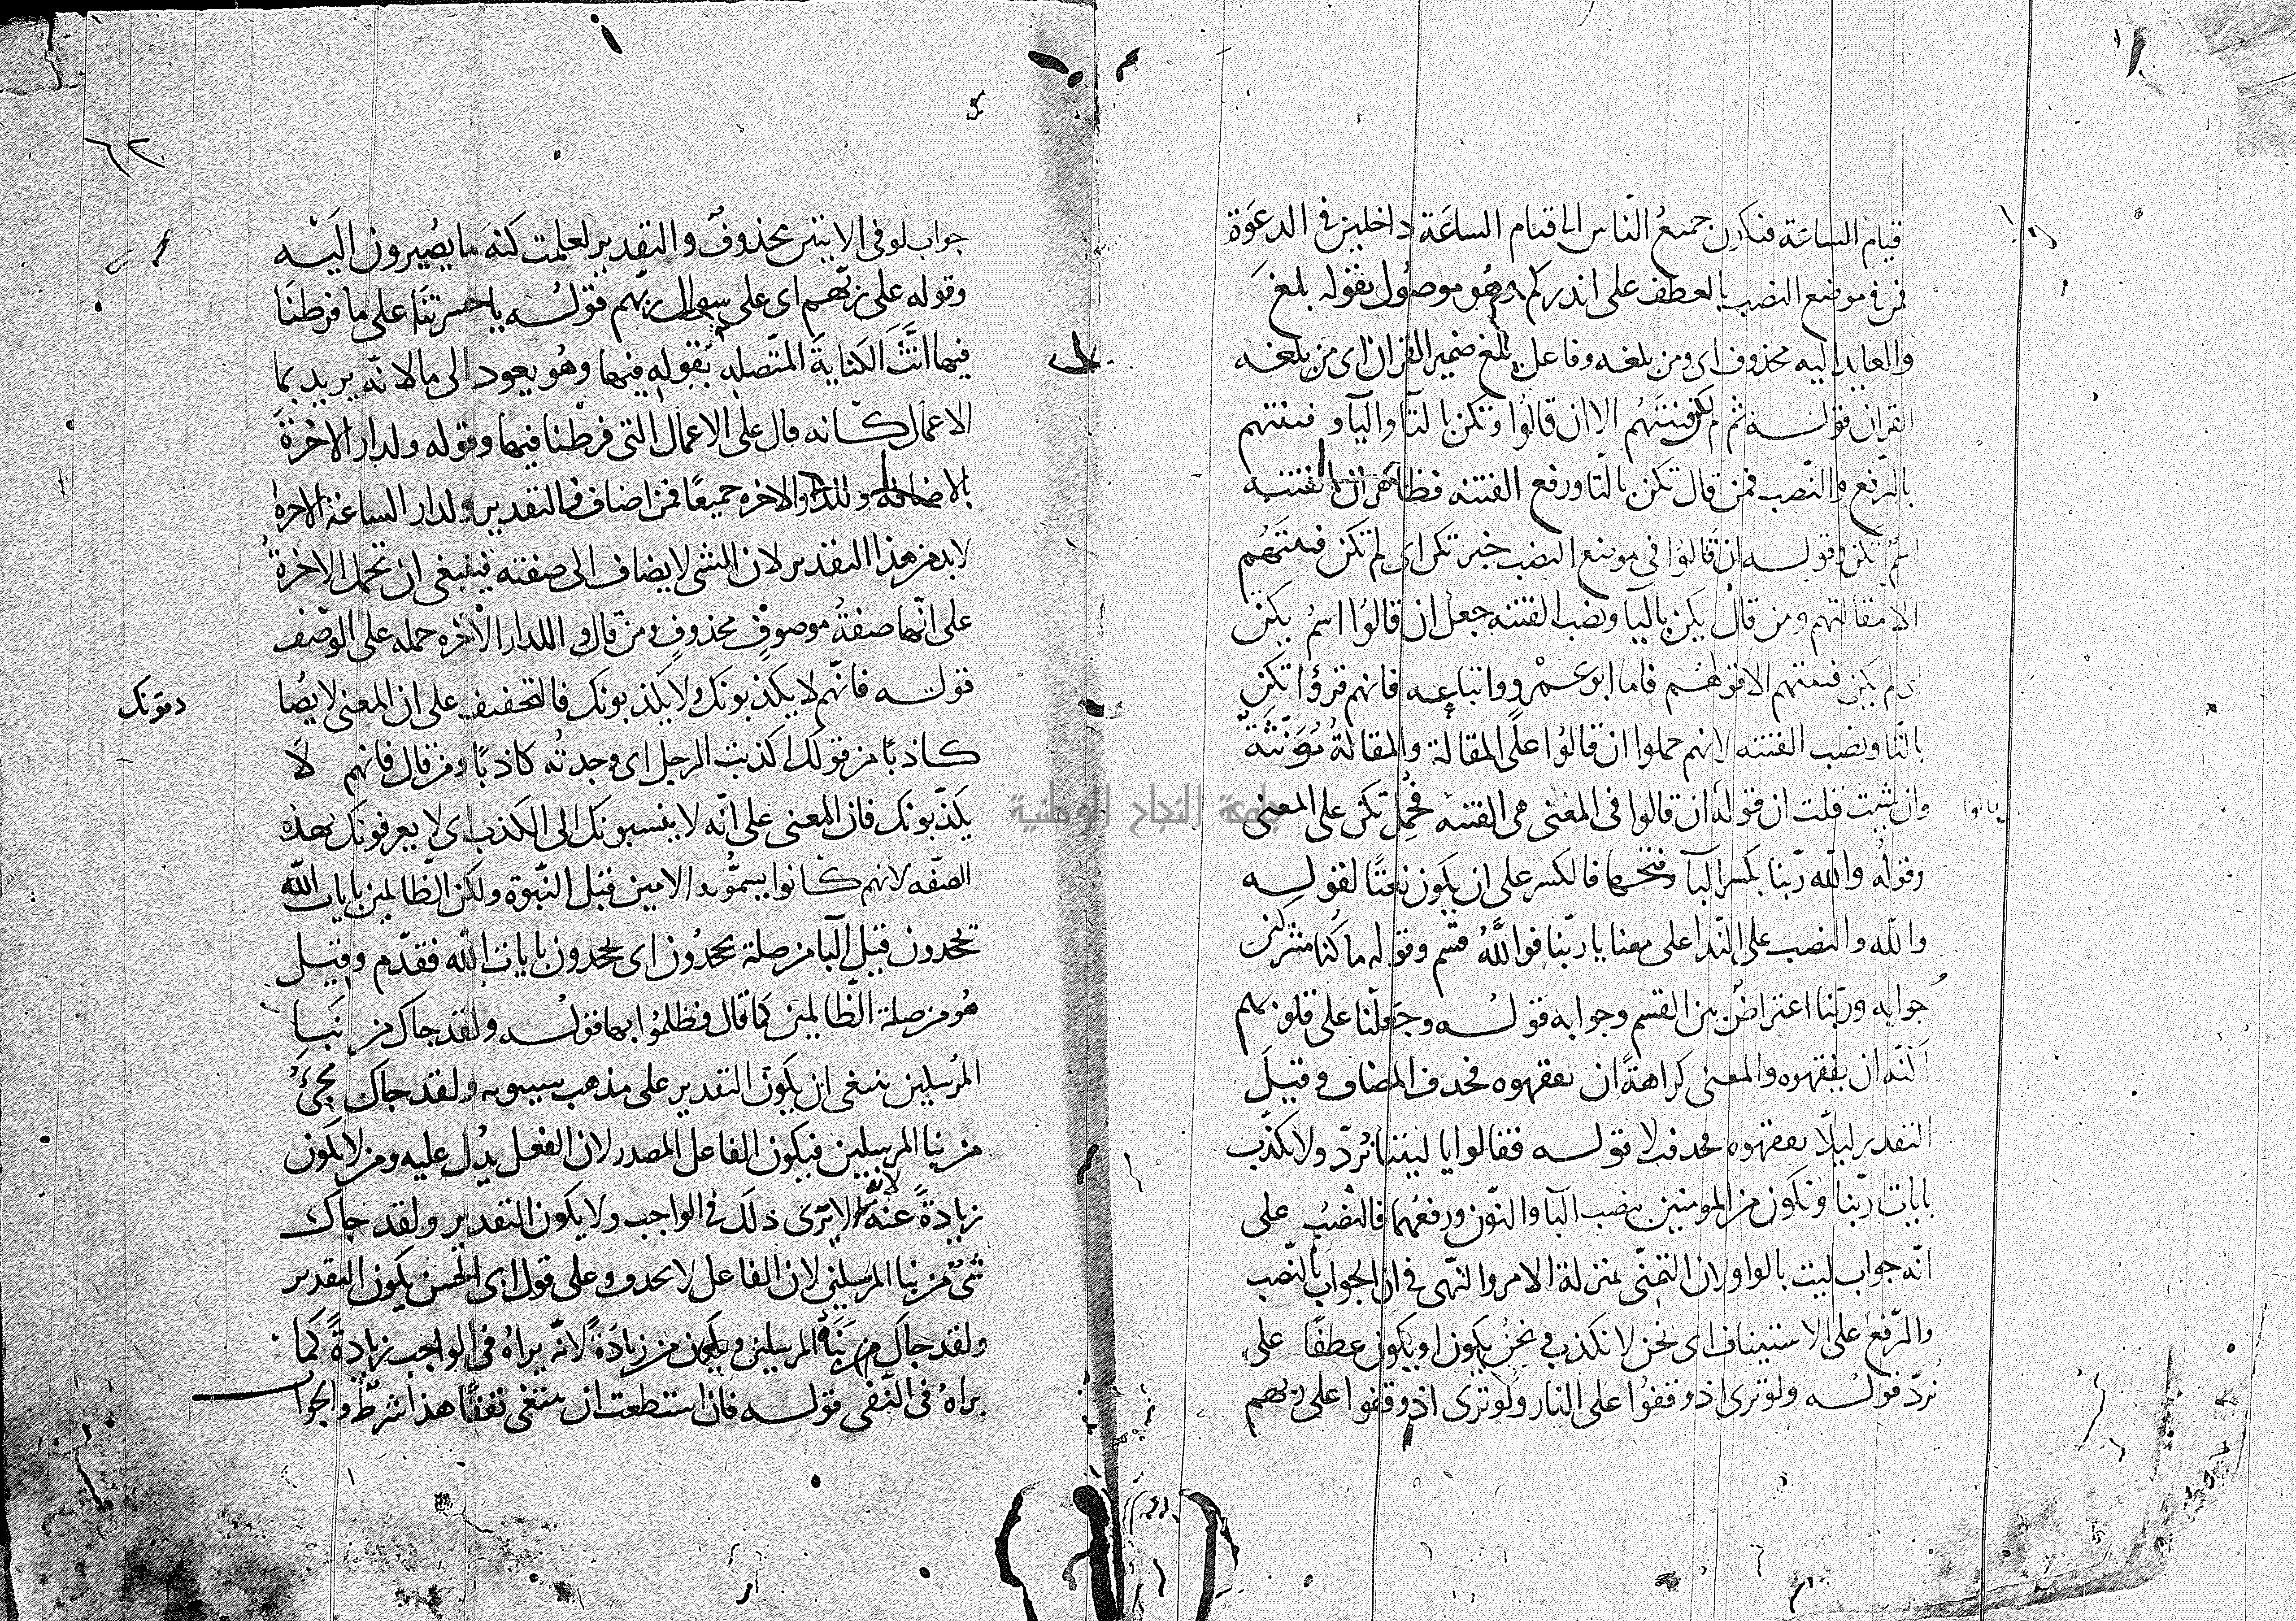 قيام الساعة فيكون جميعُ النّاس الى قيام الساعَة داخلين في الدعوَة
فمن في موضع النصب بالعطف على انذركم وهُو موصُول بقوله بلغَ
والعايد اليه محذوف اى ومن بلغه وفاعل بلغ ضمير القران اى من بلغه
القران قولـه ثم لم تكن فتنتهُم الا ان قالوُا وتكن بالتا واليآ و فتنتهم
بالرّفع والنّصب فمن قال تكن بالتّا ورفع الفتنه فظاهر ان الفتنـه
اسم تكن وقولـه ان قالوُا في موضع النصب خبر تكن اى لم تكن فتنتهُم
الا مقالتهم ومن قال يكن باليآ ونصب الفتنه جعل ان قالوُا اسمُ يكن
اى لم يكن فتنتهم الا قولهُم فاما ابو عمْرو واتباعه فانهم قرؤا تكن
بالتّا ونصب الفتنه لانهم حملوا ان قالوُا على المقالة والمقالةُ مؤنّثة
وان شيت قلت ان قوله ان قالوا في المعنى هى الفتنه فحُمل تكن على المعنى
وقوله واللّه ربّنا بكسر البآ وفتحها فالكسر على ان يكون نعتًا لقولـه
واللّه والنصب على النّدا على معنا يا ربّنا فواللَّهُ قسم وقوله ما كنا مشركين
جوابه وربّنا اعتراضٌ بين القسم وجوابه قولـه وجَعلنا على قلوبهم
اكنّه ان يفقهوه والمعنى كراهةً ان يفقهوه فحذف المضاف وقيل
التقدير ليلّا يفقهوه فحذف لا قولـه فقالوا يا ليتنا نُردّ ولا نكذّب
بايات ربّنا ونكون من المومنين بنصب البآ والنّون ورفعهما فالنصبُ على
انّه جواب ليت بالواو لان التمنّى بمنزلة الامر والنّهى في ان الجواب بالنّصب
والرّفع على الاستيناف اى نحن لا نكذب ونحنُ نكون او يكون عطفًا على
نُردّ قولـه ولو ترى اذ وقفوُا على النار ولو ترى اذ وقفوا على ربهم
جواب لو في الايتين محذوفٌ والتقدير لعلمت كنهَ ما يصيرون اليْـه
وقوله على ربّهم اى على سوال ربّهم قولُـه يا حسرتنَا على ما فرطنَا
فيها انّثَ الكنايةَ المتّصله بقوله فيها وهُو يعود الى ما لانّه يريد بما
الاعمال كانه قال على الاعمال التى فرّطنا فيها وقوله ولدار الاخرةَ
بالاضافه وللدار الاخره جميعًا فمن اضاف فالتقدير ولدار الساعة الاخرة
لا بد من هذا التقدير لان الشى لا يضاف الى صفته فينبغى ان تحمل الاخرةُ
على انّها صفةُ موصوفٍ محذوفٍ ومن قال وللدار الاخره حمله على الوصف
قولـه فانّهم لا يكذبونك ولا يكذبونك فالتخفيف على ان المعنى لا يصا
دفونك
كاذبًا من قولك اكذبت الرجل اى وجدتُه كاذبًا ومن قال فانهم لا
يكذّبونك فان المعنى على انّه لا ينسبونك الى الكذب اى لا يعرفونك بهذه
الصفّه لانهم كانوا يسمُّونه الامين قبل النّبوة ولكن الظالمين بايات اللّه
يجحدون قيل البآ من صلة يجحدُون اى يجحدون بايات اللّه فقدّم وقيـل
هُو من صلة الظّالمين كما قال فظلمُوا بها قولُـه ولقد جاك من نَبـا
المُرسلين ينبغى ان يكون التقدير على مذهب سيبويه ولقد جاك مجئٌ
من نبا المرسلين فيكون الفاعل المصدر لان الفعل يدُل عليه ومن لا يكون
زيادةً عنده لانّه لا يرَى ذلك في الواجب ولا يكون التقدير ولقد جاك
شىٌ من نبا المرسلين لان الفاعل لا يحذف وعلى قول ابى الحسن يكون التقدير
ولقد جاكَ من نَبَأ المرسلين ويكون من زيادَةً لانّه يراهُ في الواجب زيادةً كما
يراهُ في النّفى قولـه فان استطعت ان تبتغى نفقًا هذا شرطٌ والجوا